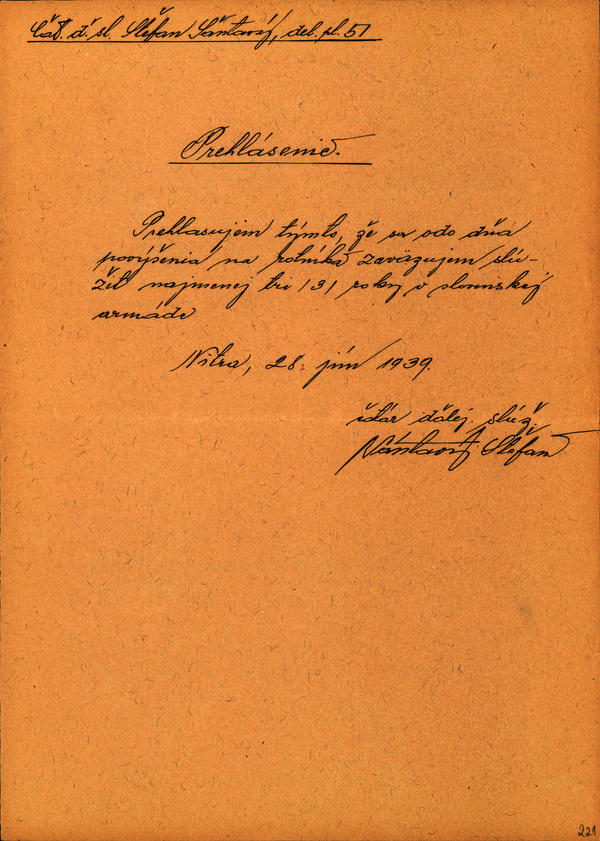 Čat. ď. sl. Štefan Šántavý, del. pl. 51
Prehlásenie.
Prehlasujem týmto, že sa odo dňa
povýšenia na rotníka zaväzujem slú-
žiť najmenej tri /3/ roky v slovenskej
armáde
Nitra, 28. jún 1939.
čatár ďalej. slúž.
Šántavý Štefan
221